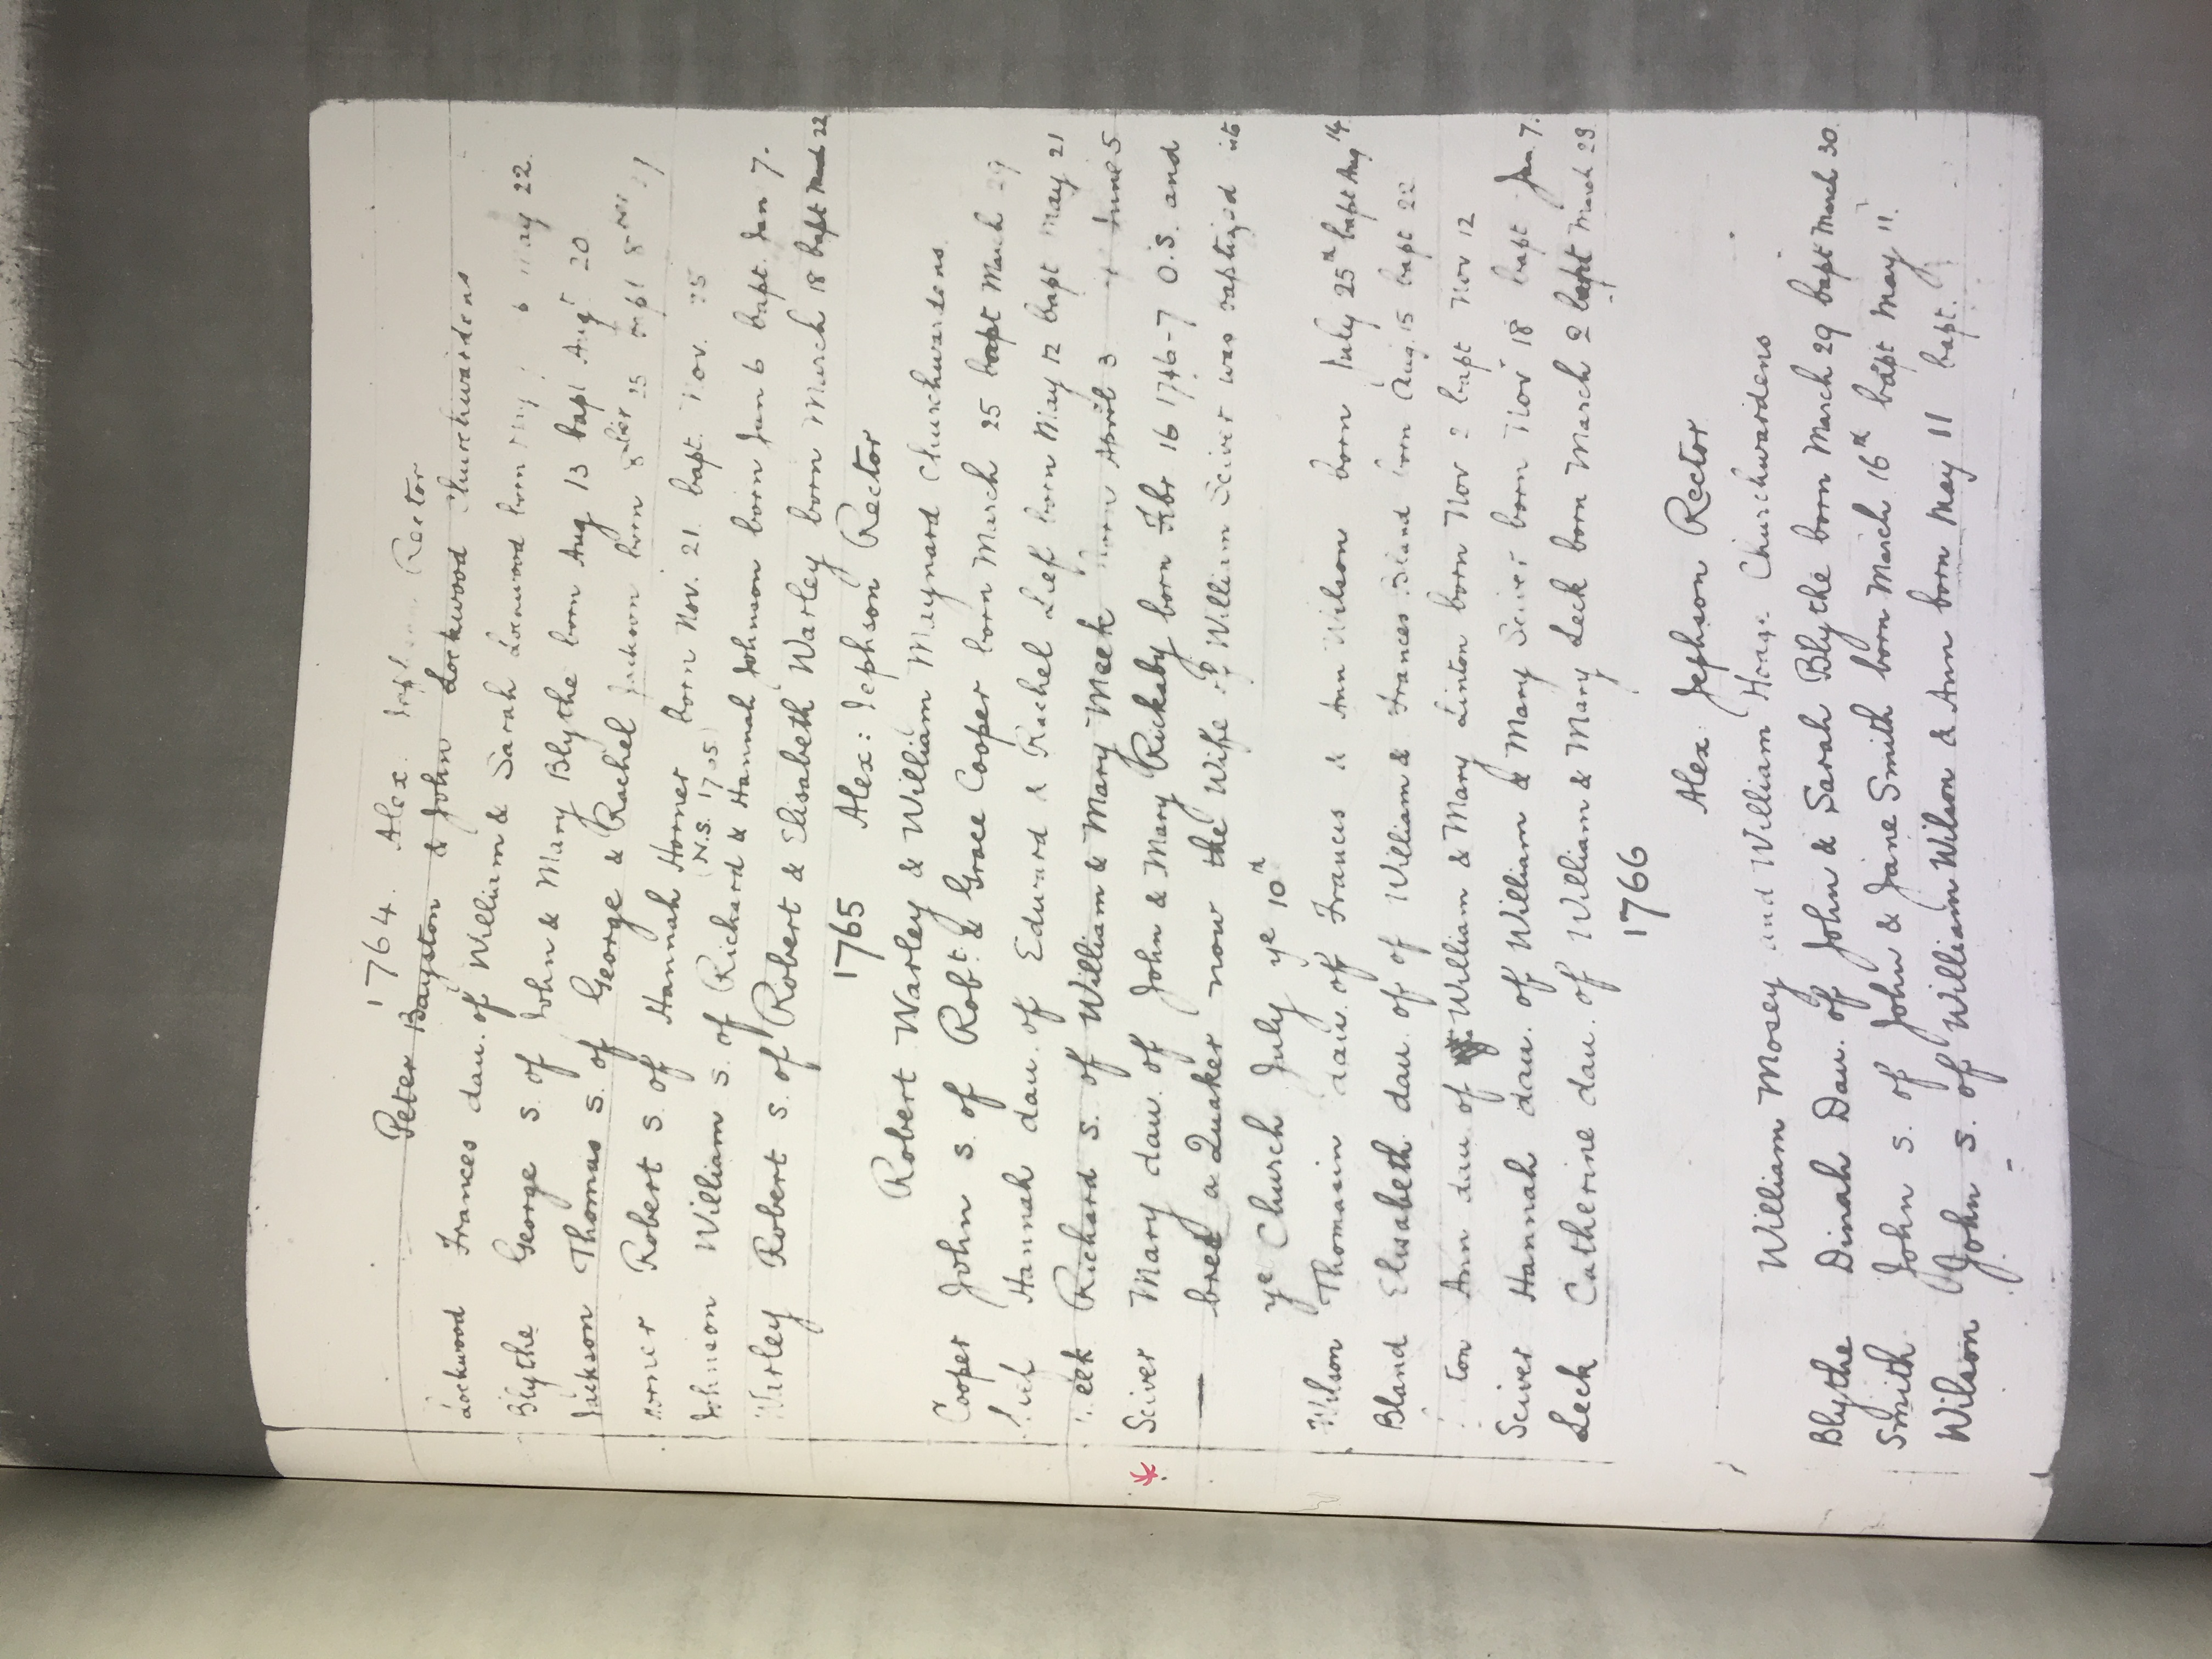 1764. Alex. Rector
Peter Bayston & John Lockwood Churchwardens
Lockwood Frances dau. of William & Sarah Lockwood born May 22.
Blythe George s. of John & Mary Blythe born Aug 13 bapt Augt 20
Jackson Thomas s. of George & Rachel Jackson born 8ber 25 bapt
Horner Robert s. of Hannah Horner born Nov. 21. bapt. Nov. 25
Johnson William s. of Richard & Hannah Johnson born Jan 6 bapt. Jan 7.
(N.S. 1765)
Warley Robert s. of Robert & Elisabeth Warley born March 18 bapt March 22
1765 Alex: Jephson Rector
Robert Warley & William Maynard Churchwardens.
Cooper John s. of Robt. & Grace Cooper born March 25 bapt March 29
Lief Hannah dau. of Edward & Rachel Lief born May 12 bapt May 21
Meek Richard s. of William & Mary Meek born April 3 June 5
Sciver Mary dau. of John & Mary Rickaby born Febr 16 1746-7 O.S. and
bred a Quaker now the Wife of William Sciver was baptized at
ye Church July ye 10th
Wilson Thomasin dau. of Frances & Ann Wilson born July 25th bapt Aug 14.
Bland Elisabeth dau. of of William & Frances Bland born Aug. 15 bapt 22
Linton Ann dau. of William & Mary Linton born Nov 2 bapt Nov 12
Sciver Hannah dau. of William & Mary Sciver born Novr 18 bapt Jan 7.
Leck Catherine dau. of William & Mary Leck born March 2 bapt March 23
1766
Alex: Jephson Rector
William Mosey and William Hoage Churchwardens
Blythe Dinah Dau. of John & Sarah Blythe born March 29 bapt March 30.
Smith John s. of John & Jane Smith born March 16th bapt May 11.
Wilson John s. of William Wilson & Ann born May 11 bapt.